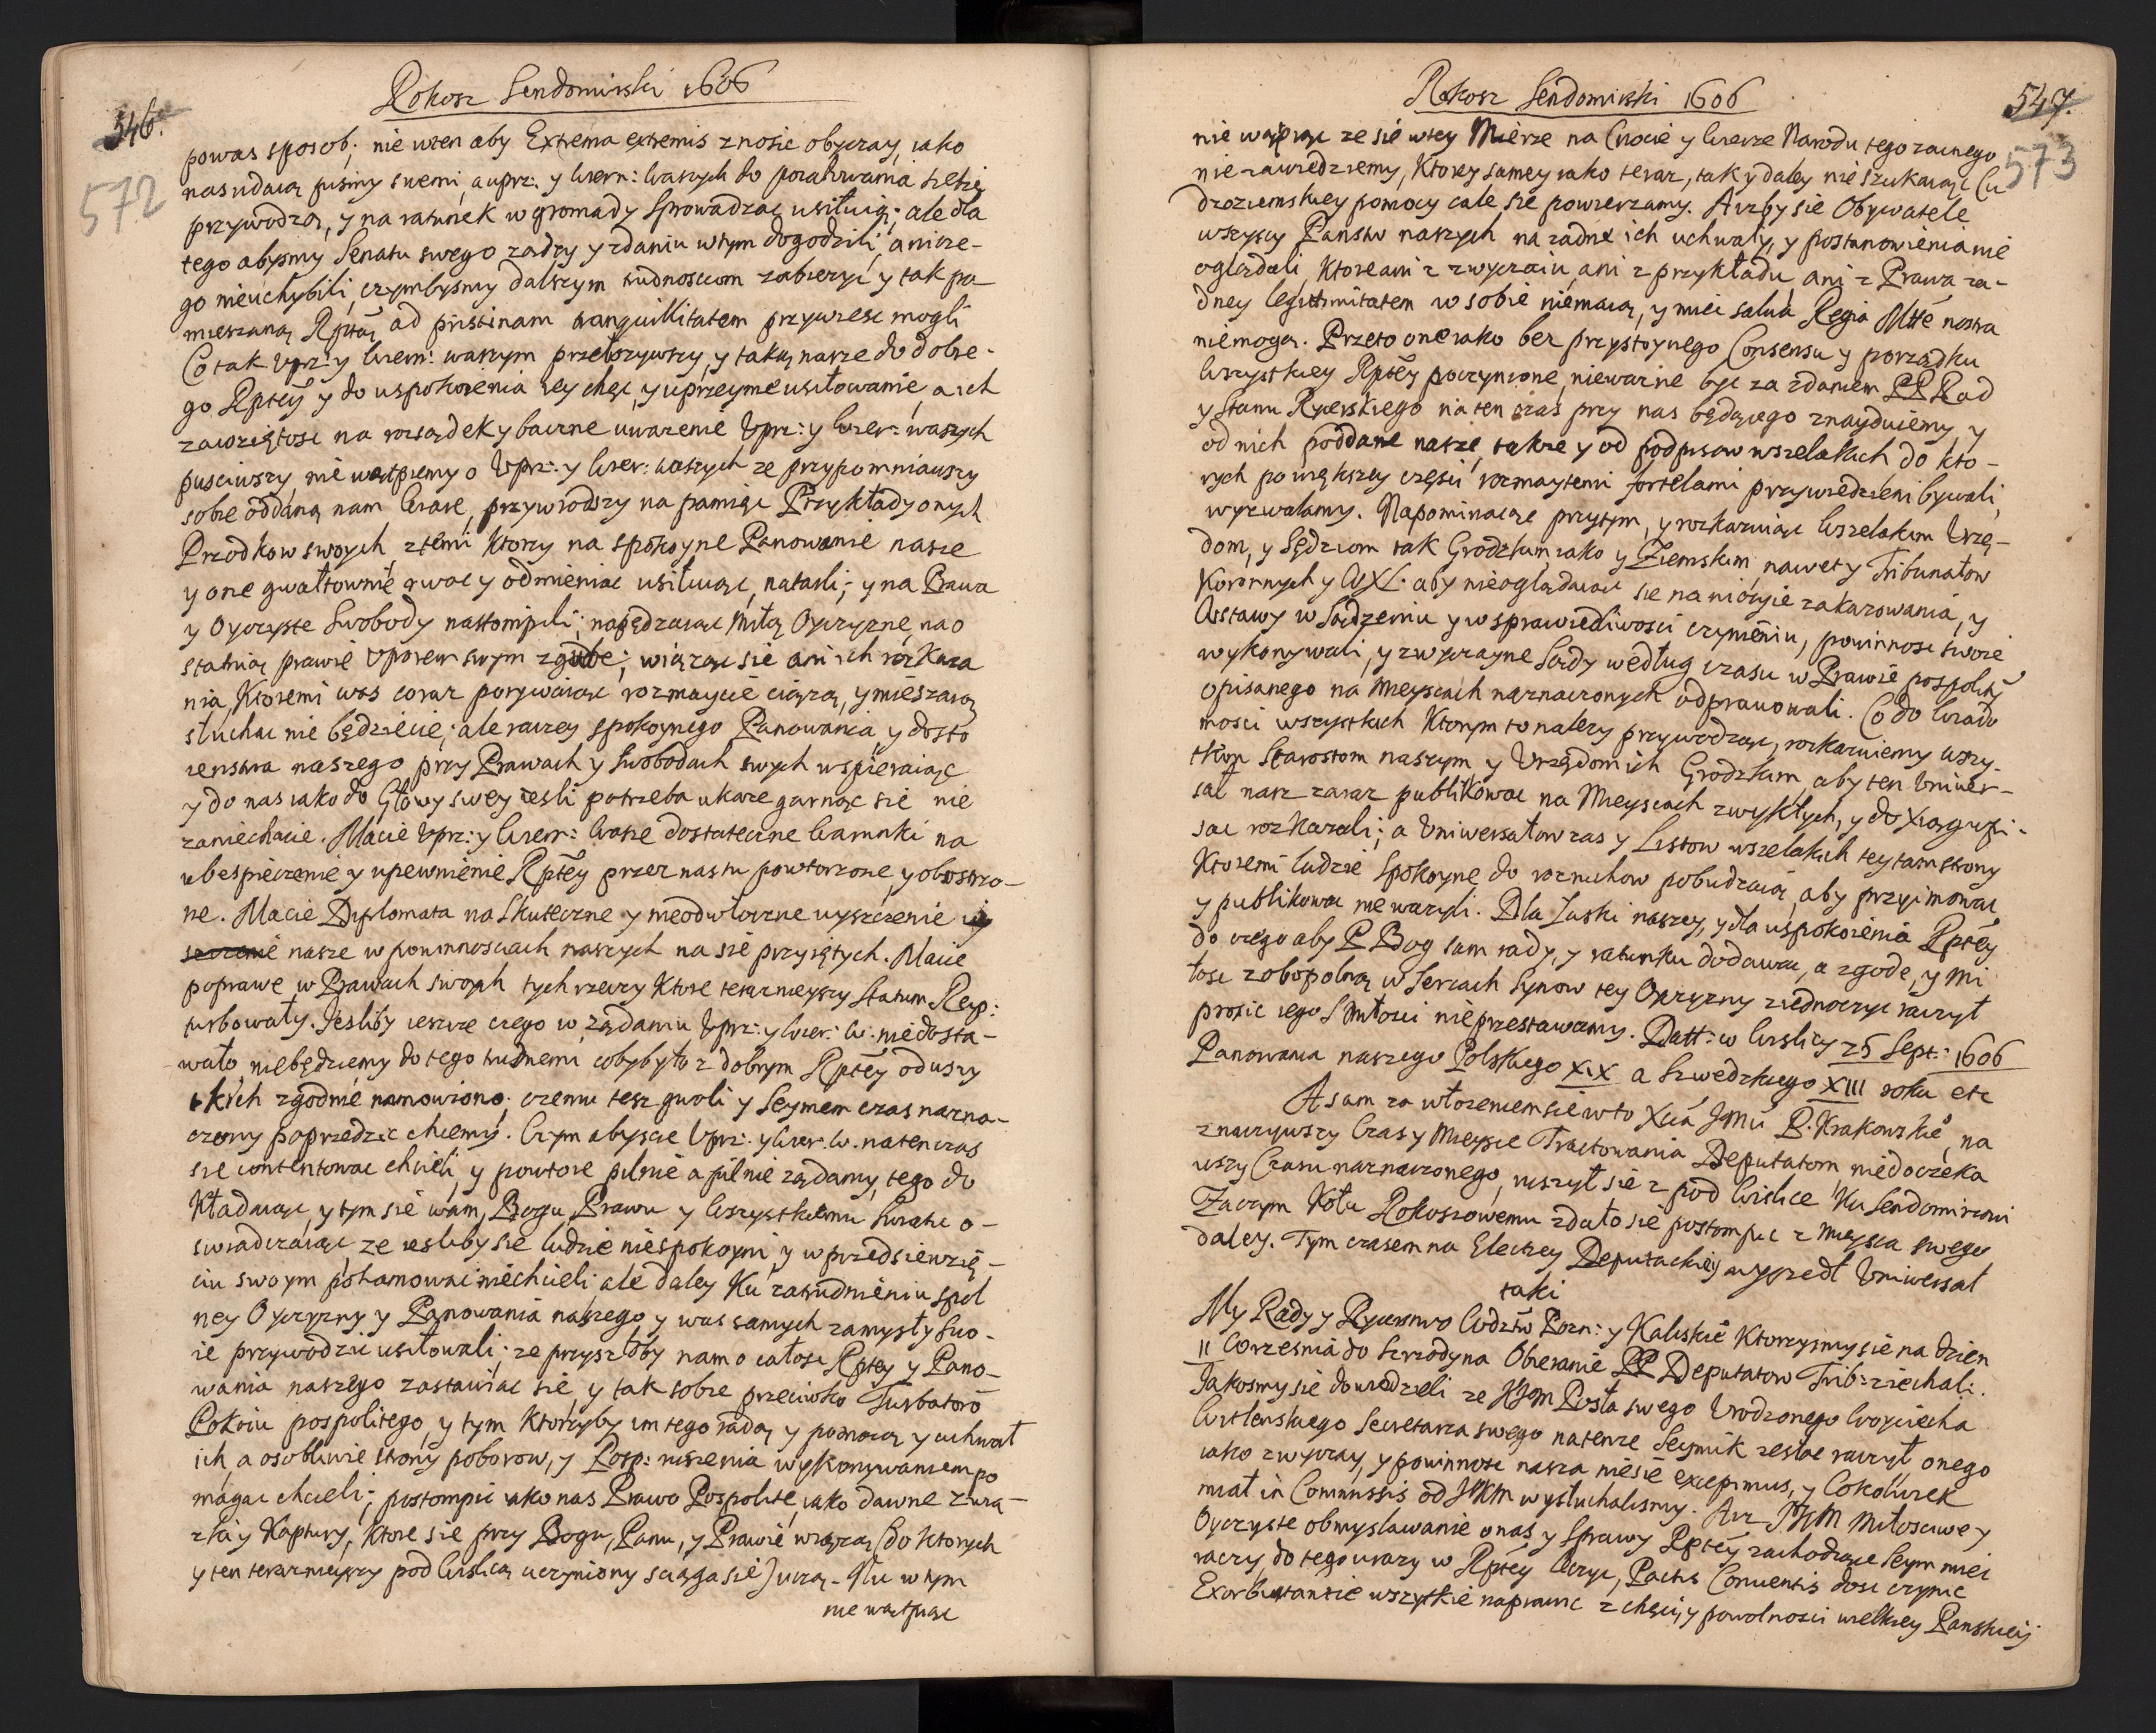 Rokosz Sendomirski 1606
546.
572
powas sposob; nie wten aby Extrema extremis znosic obyczay, iako
nas udaią pismy swemi, a uprz: y Wiern: Waszych do porachrwania
przywodzą, y na ratunek w gromady sprowadzac usiłuią; ale dla
tego abysmy Senatu swego zadzy y zdaniu wtym dogodzili, a nicze-
go nieuchybili, czymbysmy dalszym trudnosciom zabiezyc y tak po
mieszaną Rptą ad pristinam tranquillitatem przywiesc mogli
Co tak Uprz: y Wiern: waszym przełozywszy, y taką nasze do dobre-
go Rptey y do uspokoienia iey chęc, y uprzeyme usiłowanie, a ich
zawziętosc na rozsądek y baczne uwazenie Uprz: y Wier: waszych
pusciwszy, nie wątpiemy o Uprz: y Wier: Waszych ze przypomniawszy
sobie oddaną nam Wiarę, przywiodszy na pamięc Przykłady onych
Przodkow swoych, ztemi ktorzy na spokoyne Panowanie nasze
y one gwałtownie rwac y odmieniac usiłuiąc, natarli; y na Prawa
y Oyczyste Swobody nastompili; napędzaiąc miłą Oyczyznę na o
statnią prawie Uporem swym zgubę; wiązac sie ani ich rozkaza
nia, ktoremi was coraz porywaiąc rozmaycie ciązą, y mieszaią
słuchac nie będziecie; ale raczey spokoynego Panowania y dosto
ienstwa naszego przy Prawach y Swobodach swych wspieraiąc
y do nas iako do Głowy swey iesli potrzeba ukaze garnąc się nie
zaniechacie. Macie Uprz: y Wier: Wasze dostateczne Warunki na
ubespieczenie y upewnienie Rptey przez nas tu powtorzone, y obostrzo-
ne. Macie Diplomata na skuteczne y nieodwłoczne uyszczenie
nasze w powinnosciach naszych na sie przyiętych. Macie
poprawę w Prawach swoych tych rzeczy ktore terazmieyszy Statum Reip:
turbowały. Jesliby ieszcze czego w ządaniu Uprz: y Wier: W. niedosta-
wało, niebędziemy do tego trudnemi, cobybyło z dobrym Rptey od wszy
tkich zgodnie namowiono; czemu tesz gwoli y Seymem czas nazna-
czony poprzedzic chcemy. Czym abyscie Uprz: y Wier: W. natenczas
sie contentowac chcieli, y powtore pilnie a pilnie ządamy, tego do
kładaiąc, y tym sie wam, Bogu, Prawu y Wszystkiemu Swiatu o-
swiadczaiąc, ze iesliby sie ludzie niespokoyni, y w przedsiewzię-
ciu swoym pohamowac niechcieli, ale daley ku zatrudnieniu spol
ney Oyczyzny y Panowania naszego, y was samych zamysły swo-
ie przywodzic usiłowali; ze przyszłoby nam o całosc Rptey y Pano-
wania naszego zastawiac się, y tak sobie przeciwko Turbatorō
Pokoiu pospolitego, y tym ktorzyby im tego radą y pomocą y uchwał
ich, a osobliwie strony poborow, y Posp: ruszenia wykonywaniem po
magac chcieli; postompic iako nas Prawo Pospolite, iako dawne zwią-
zki y Kaptury, ktore sie przy Bogu, Panu, y Prawie wiązą (do ktorych
y ten terazmieyszy pod Wislicą uczyniony sciąga sie) uczą. Nic w tym
nie wątpiąc
Rokosz Sendomirski 1606
547.
573
nie wątpiąc ze sie w tey Mierze na Cnocie y Wierze Narodu tego zacnego
nie zawiedziemy, ktorey samey iako teraz, tak y daley nie szukaiąc Cu
dzoziemskiey pomocy cale się powierzamy. Aizby sie Obywatele
wszyscy Panstw naszych na zadne ich uchwały, y postanowienia nie
oglądali, ktore ani z zwyczaiu, ani z przykładu, ani z Prawa za-
dney legitimitatem w sobie niemaią, y miec salva Regia Mtte nostra
niemogą. Przeto one iako bez przystoynego Consensu y porządku
Wszystkiey Rptey poczynione, niewazne byc za zdaniem PP Rad
y Stanu Rycerskiego na ten czas przy nas będącego znayduiemy, y
od nich poddane nasze, takze y od podpisow wszelakich do kto-
rych po większey części rozmaytemi fortelami przywiedzeni bywali,
wyzwalamy. Napominaiąc przytym, y rozkazuiąc Wszelakim Urzę-
dom, y Sędziom tak Grodzkim, iako y Ziemskim, nawet y Tribunałow
Koronnych y WXL. aby nieoglądaiąc się na niczyie zakazowania, y
Ustawy w Sądzeniu y w sprawiedliwosci czynieniu, powinnosc swoie
wykonywali, y zwyczayne Sądy według czasu w Prawie pospolitỹ
opisanego na mieyscach naznaczonych odprawowali. Co do Wiado
mosci wszystkich ktorym to nalezy przywodząc, rozkazuiemy wszy-
tkim Starostom naszym y Urzędom ich Grodzkim, aby ten Univer-
sał nasz zaraz publikowac na Mieyscach zwykłych, y do Xiąg wpi-
sac rozkazali; a Uniwersałow zas y Listow wszelakich tey tam strony
ktoremi ludzie spokoyne do rozruchow pobudzaią, aby przyimowac,
y publikowac nie wazyli. Dla Łaski naszey, y dla uspokoienia Rptey
do czego aby P. Bog sam rady, y ratunku dodawac, a zgodę, y mi
łosc zobopolną w Sercach Synow tey Oyczyzny ziednoczyc raczył
prosic iego S. miłosci nieprzestawamy. Datt: w Wislicy 25 Sept: 1606
Panowania naszego Polskiego XIX a Szwedzkiego XIII roku etc
A sam za włozeniem sie w to Xcia Jmci P. Krakowskiē, na
znaczywszy Czas y Mieysce Tractowania Deputatom, niedoczeka
wszy Czasu naznaczonego, ruszył sie z pod Wislice ku Sendomirzowi
Zaczym kołu Rokoszowemu zdało się postompic z mieysca swego
daley. Tym czasem na Elekcyey Deputackiey wyszedł Uniwersał
taki
My Rady y Rycerstwo Wodztw Pozn: y Kaliskiē ktorzysmy sie na dzien
11 Wrzesnia do Szrody na Obieranie PP Deputatow Trib: ziechali.
Jakosmy sie dowiedzieli ze KJM Posła swego Urodzonego Woyciecha
Secretarza swego natenze Seymik zesłac raczył, onego
iako zwyczay, y powinnosc nasza niesie excepimus, y Cokolwiek
miał in Commissis od JKM wysłuchalismy. Aiz JKM miłosciwe y
Oyczyste obmyslawanie o nas y Sprawy Rptey zachodzące Seym miec
raczy, do tego urazy w Rptey leczyc, Pactis Conventis dosc czynic
Exorbitantie wszytkie naprawic z chęci, y powolnosci wielkiey Panskiey